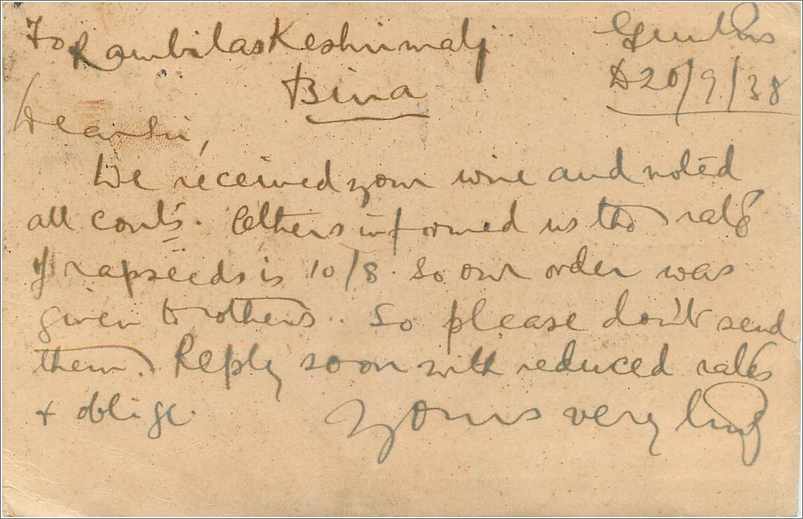 To Rambilas Keshrimalji Guntur
Bina D 20/9/38
Dear Sir,
We received your wire and noted
all conts. Others informed us the rate
of rapseeds is 10/8. So our order was
given to others. So please don't send
them. Reply soon with reduced rates
+ oblige. Yours very truly